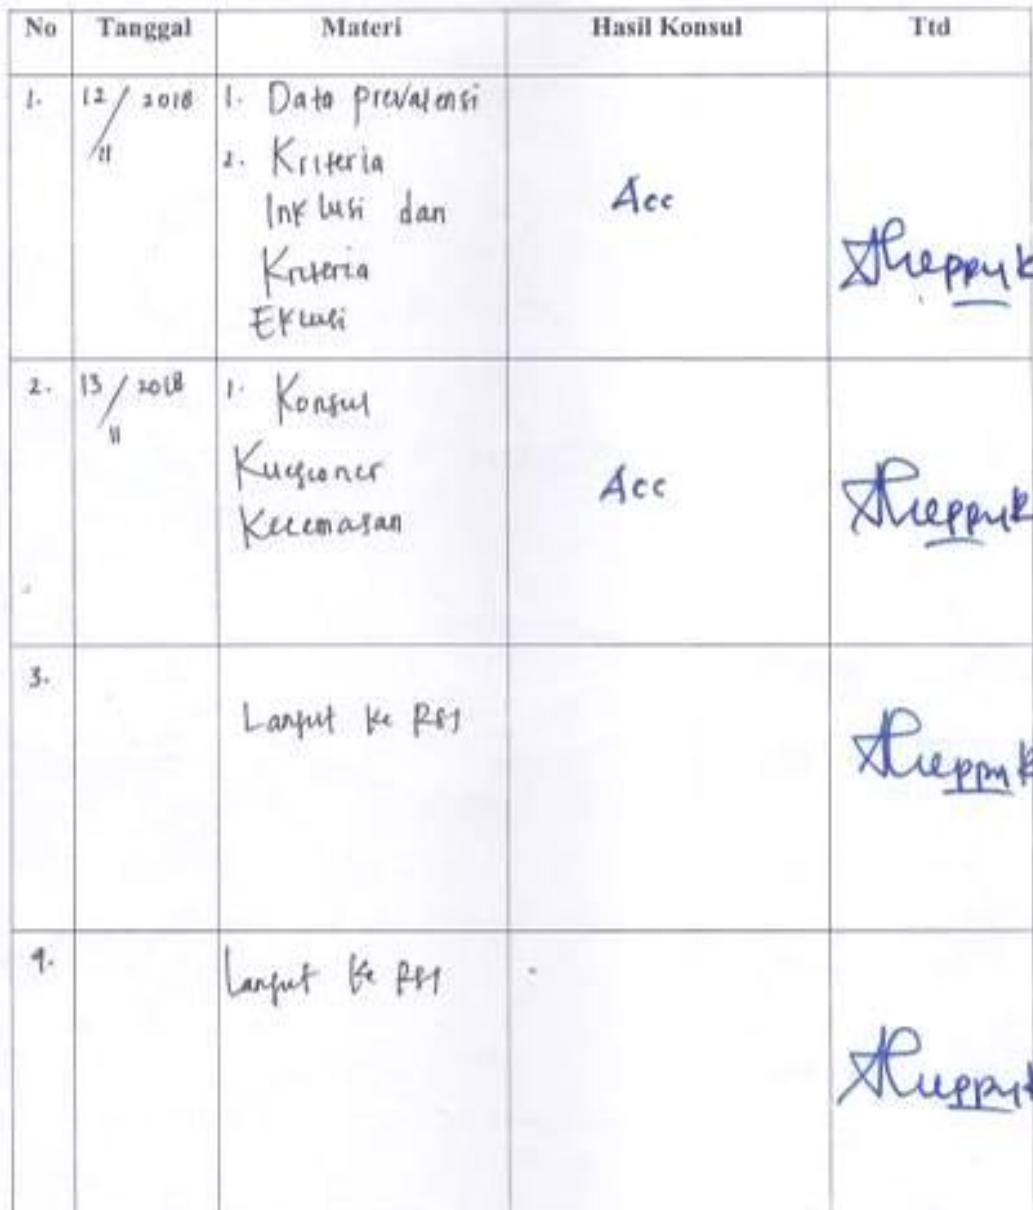 No Tanggal Materi Hasil Konsul Ttd
1. 12/11 2018 1. Data prevalensi
2. Kriteria
Inklusi dan
Kriteria
Eklusi
Acc
2. 13/11 2018 1. Konsul
Kuesioner
Kecemasan
Acc
3.
Lanjut ke
4.
Lanjut ke